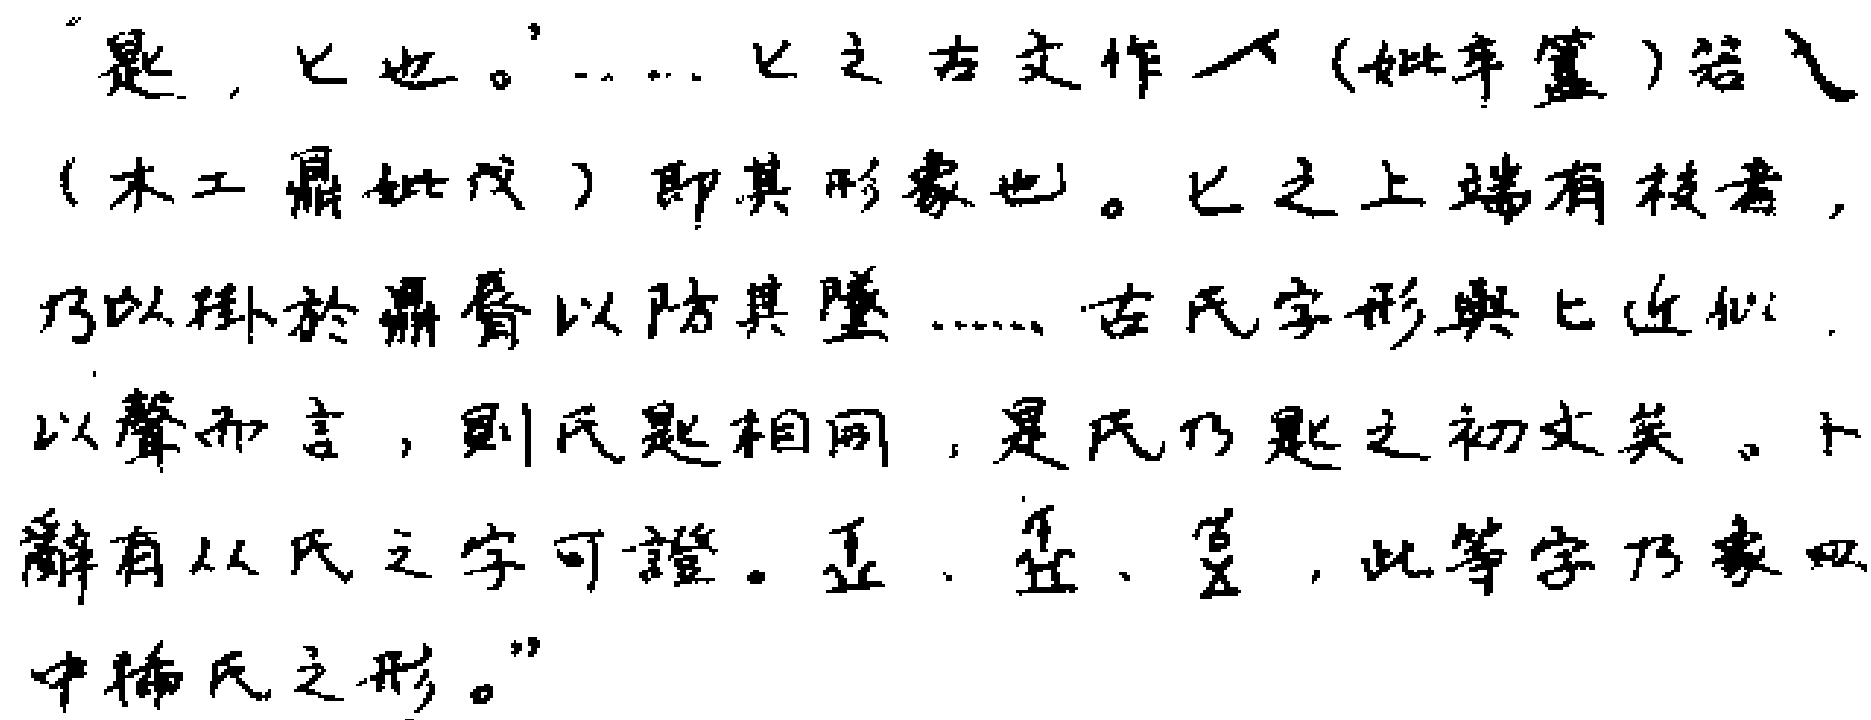 “匙，匕也。’……匕之古文作（妣辛簋）若
（木工鼎妣戊）即其形象也。匕之上端有枝者，
乃以掛於鼎脣以防其墜……古氏字形與匕近似．
以聲而言，則氏匙相同，是氏乃匙之初文矣。卜
辭有从氏之字可證。、、，此等字乃象皿
中插氏之形。”